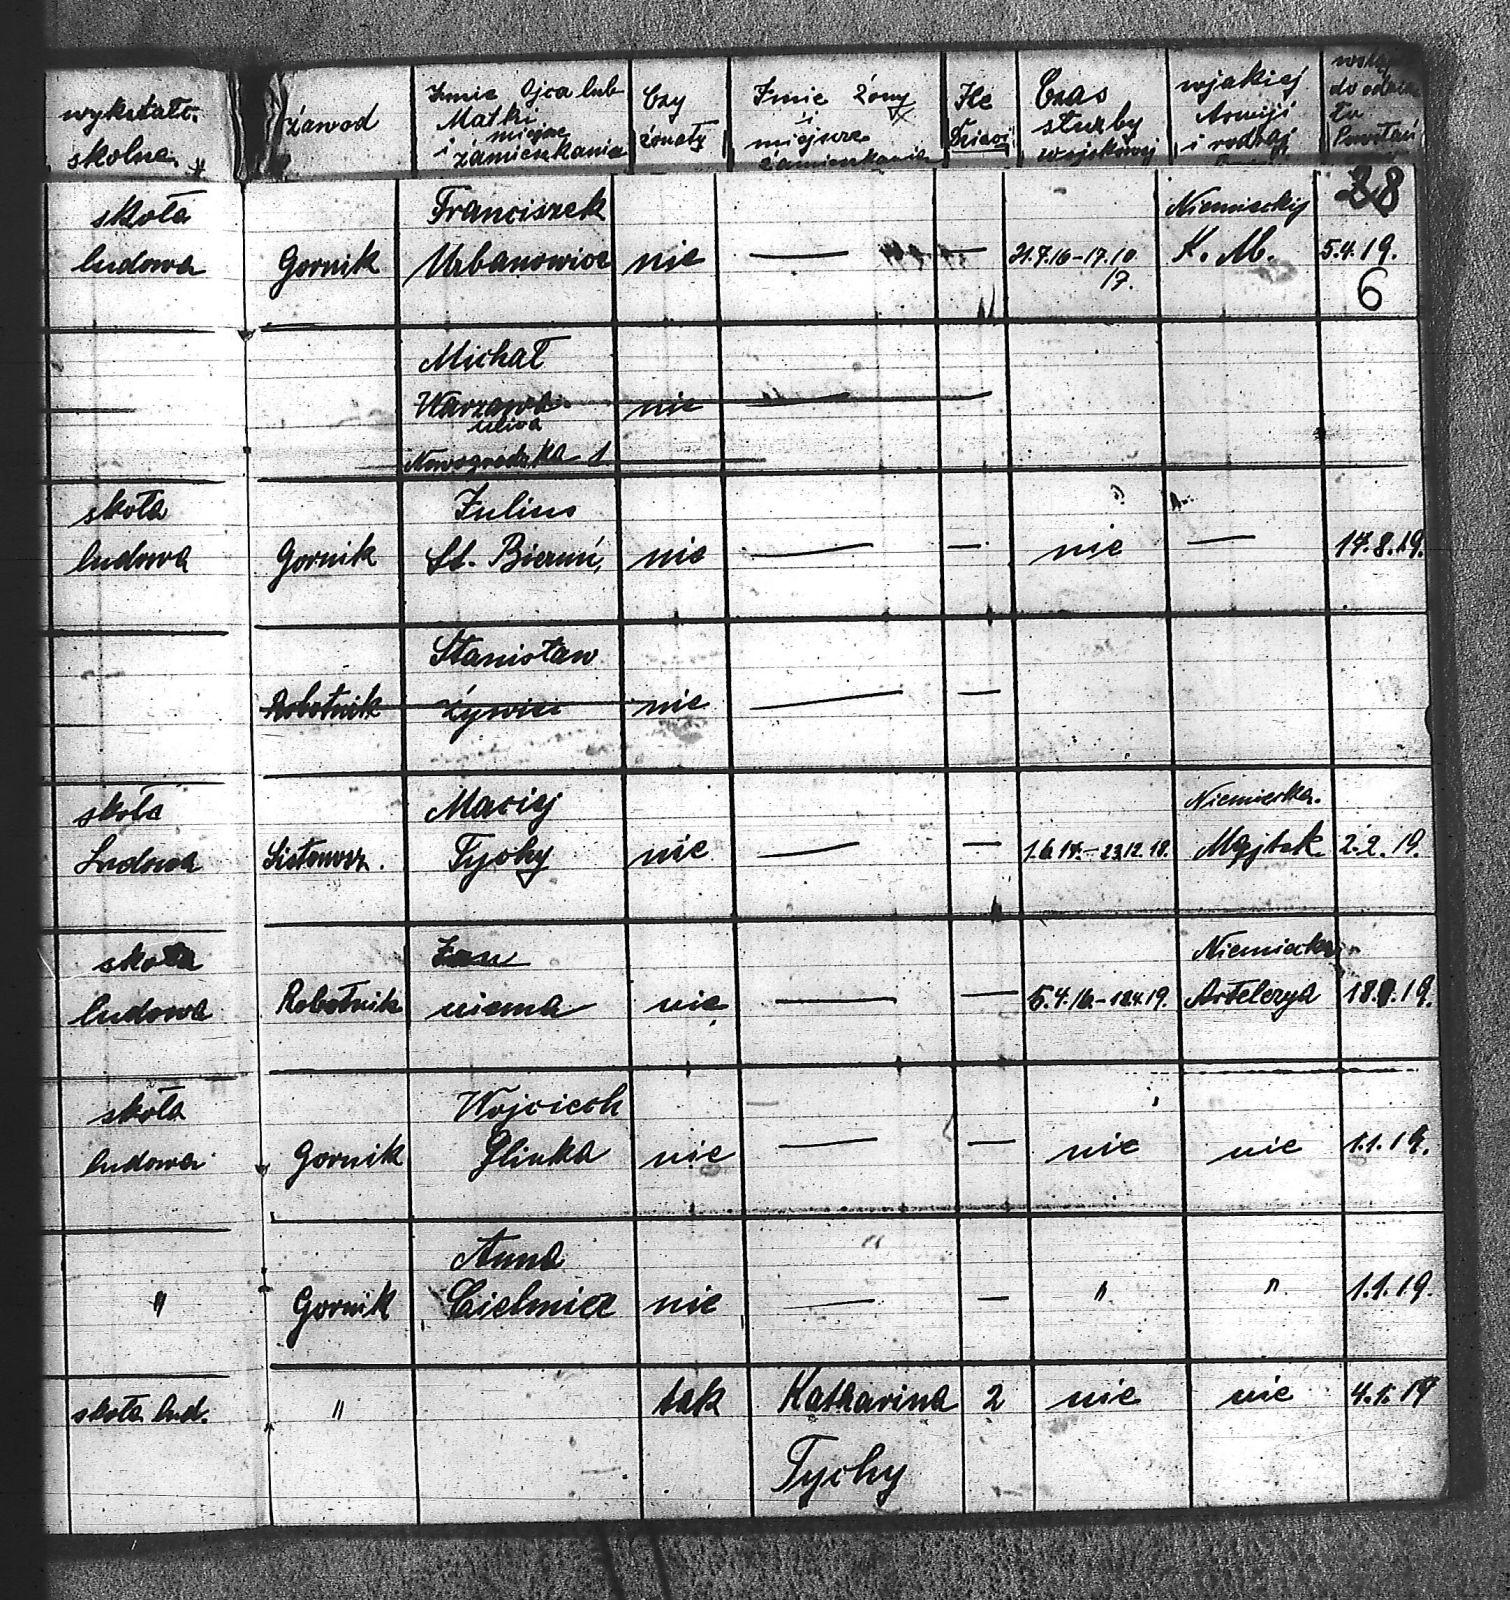 wykształc.
skolne.
zawod
Imie Ojca lub
Matki
i miejsce
zamieszkania
Czy
żonaty
Imie żony
i
miejsce
zamieszkania
Ile
Dzieci
Czas
służby
wojskowej
wjakiej
Armiji
i rodzaj
do oddzia
łu
Powstań
28
skoła
ludowa
Gornik
Franciszek
Urbanowice
nie
—
—
21.7.16-17.10
17.
Niemieckij
K. M.
5.4.19.
6
Michał
Warzawa
ulica
Nowogrodzka 1.
nie
—
skoła
ludowa
Gornik
Julius
St. Bieruń,
nie
—
—
nie
—
17.8.19.
Robotnik
Stanisław
żywiec
nie
—
—
skoła
Ludowa
Maciej
Tychy
nie
—
—
1.6.17.-23.12.18.
Niemiecka.
Majtek
2.2.19.
skoła
ludowa
Robotnik
Jan
niema
nie
—
—
5.4.16-12.4.19.
Niemiecka
Artelerya
Wojciech
skoła
ludowa
Gornik
Glinka
nie
—
—
nie
nie
1.1.19.
"
Gornik
Anna
Cielmice
nie
—
—
"
"
1.1.19.
skoła lud.
"
tak
Katharina
2
nie
nie
4.1.19
Tychy